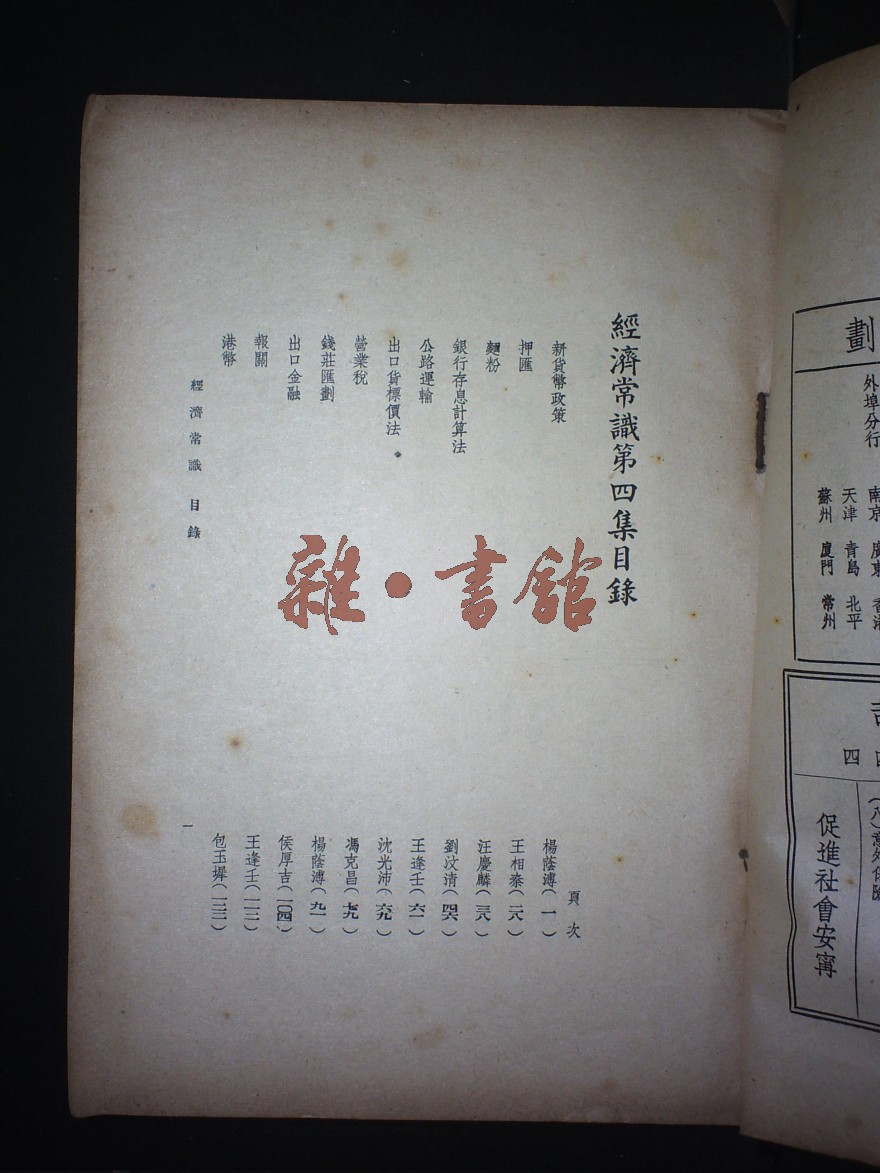 劃
外埠分行
南京 廣東 香港
天津 青島 北平
蘇州 廈門 常州
四
(八)意外保險
促進社會安寧
經濟常識第四集目錄
頁次
新貨幣政策 楊蔭溥(一)
押匯 王相秦(二八)
麵粉 汪慶麟(三八)
銀行存息計算法 劉汶清(四六)
公路運輸 王逢壬(六一)
出口貨標價法 沈光沛(六九)
營業稅 馮克昌(七九)
錢莊匯劃 楊蔭溥(九一)
出口金融 侯厚吉(一〇四)
報關 王逢壬(一一二)
港幣 包玉墀(一三三)
經濟常識 目錄
一
雜·書館